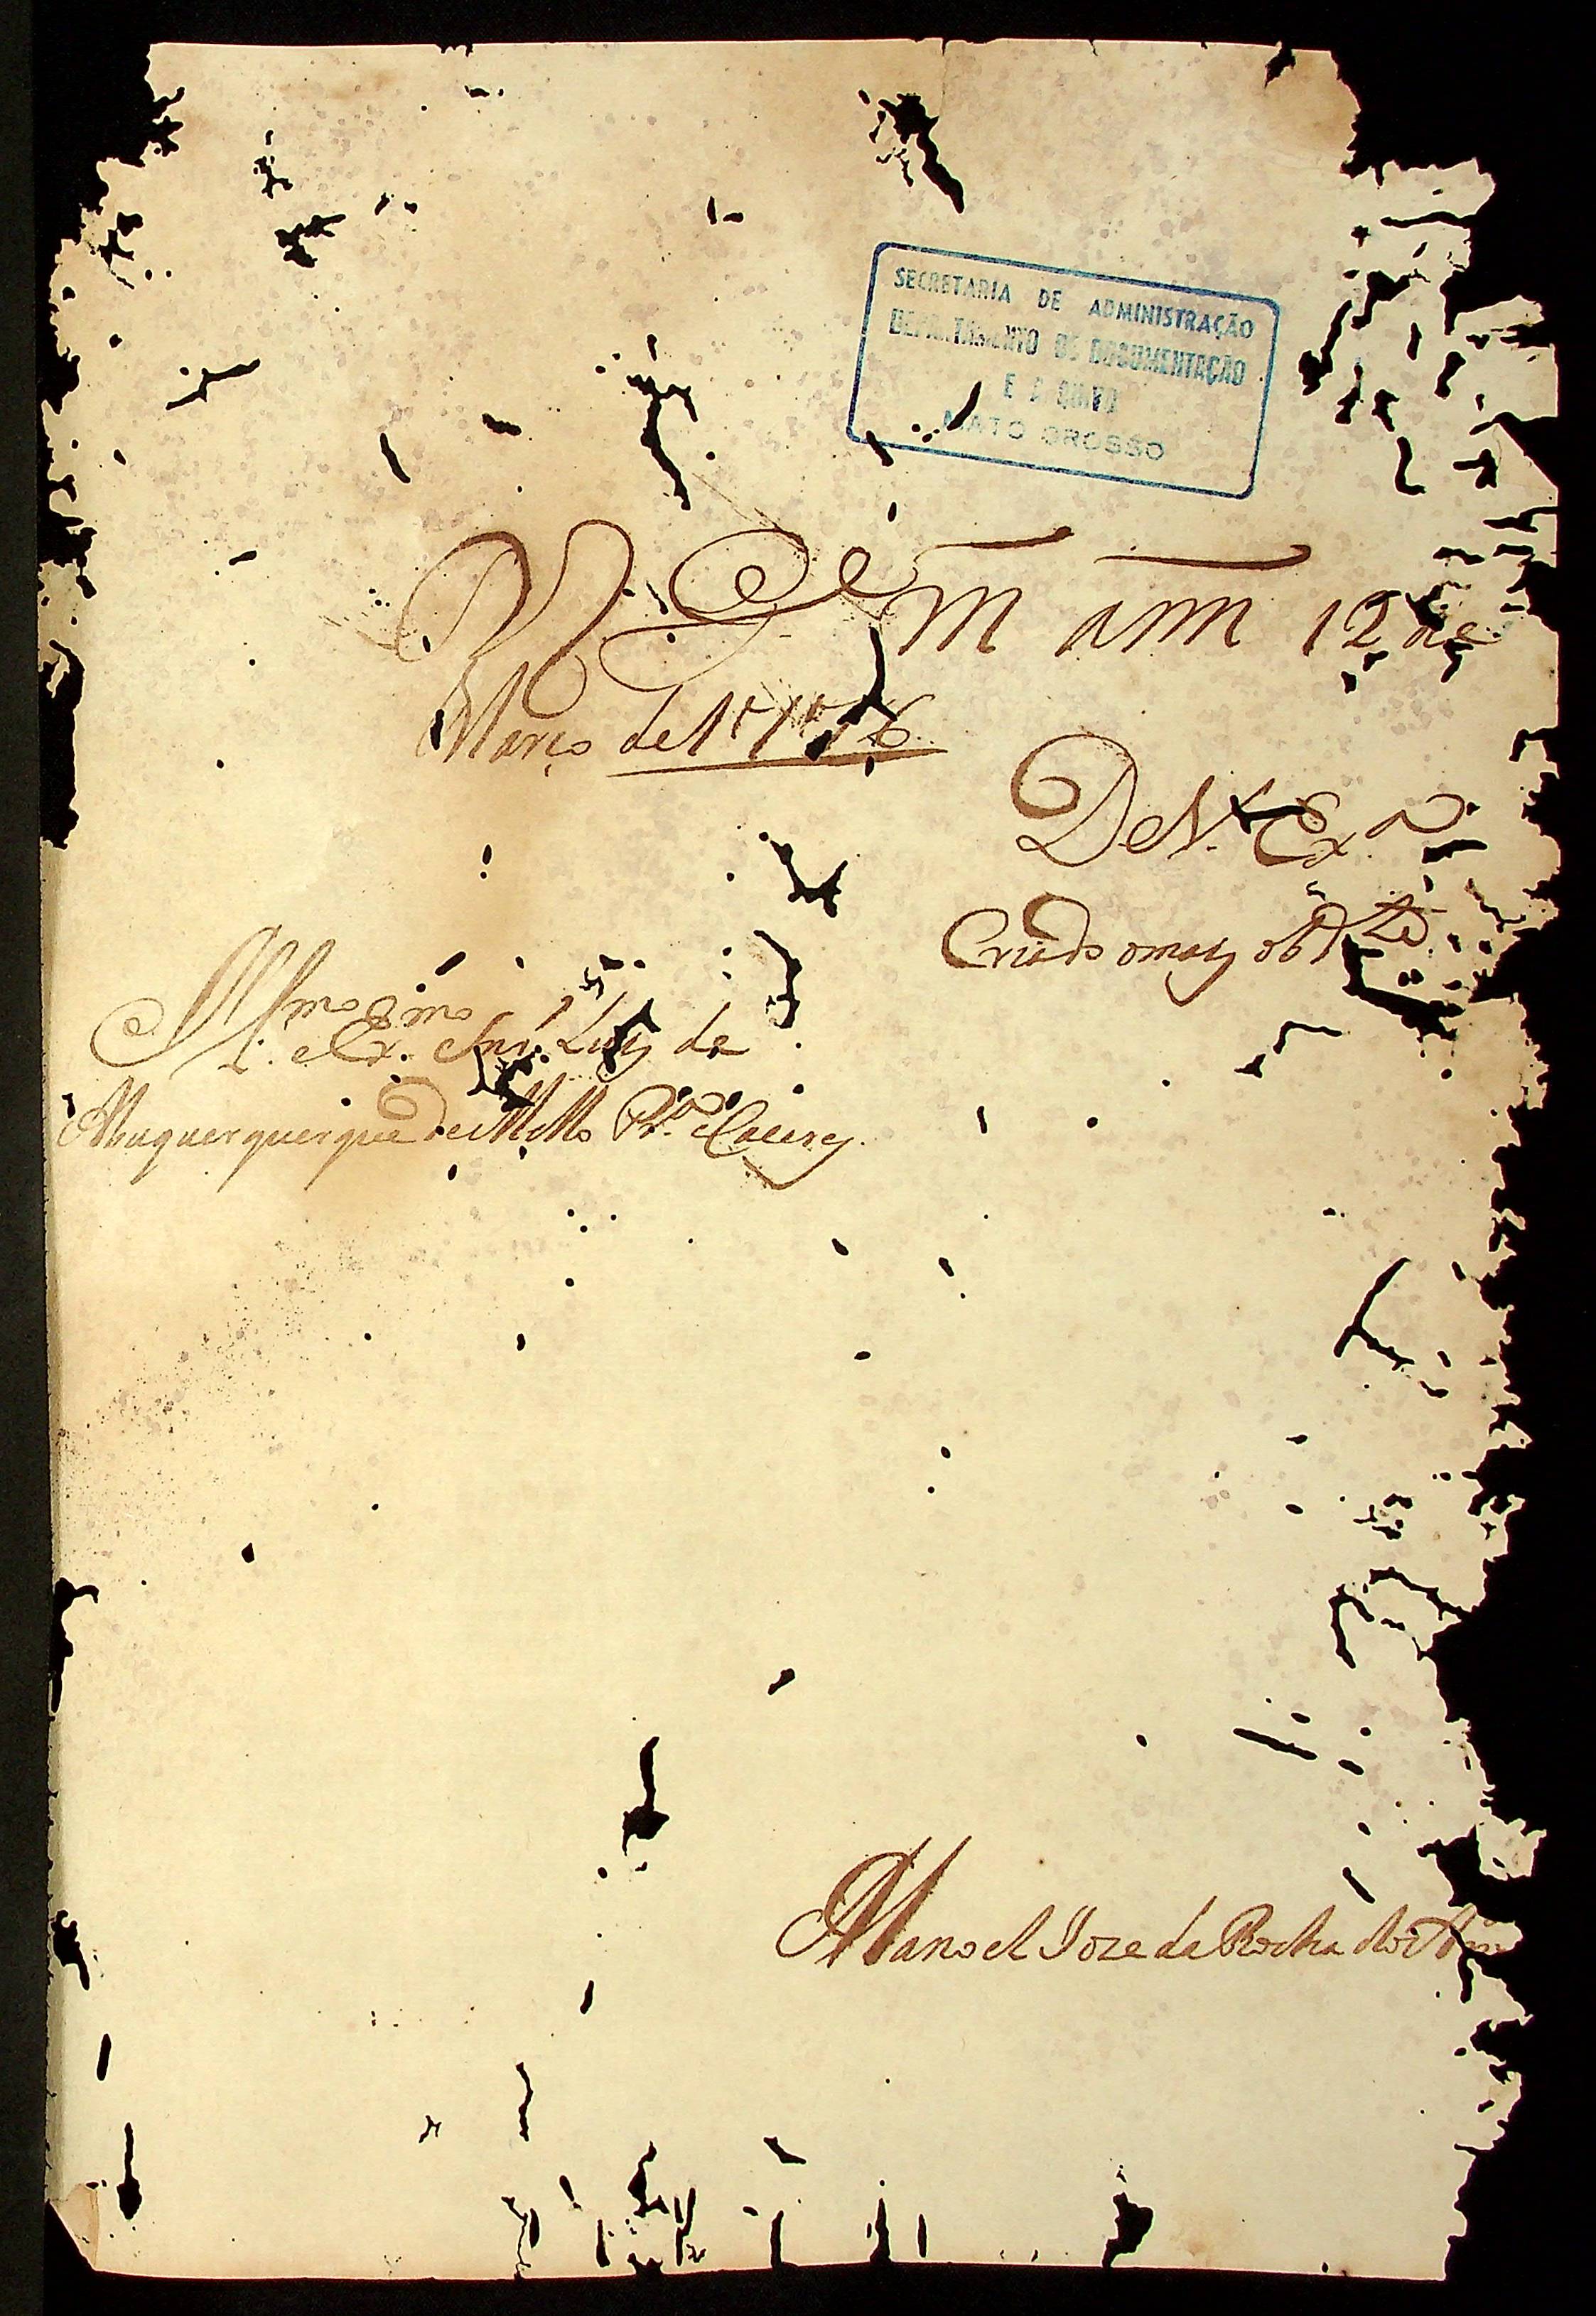 SECRETARIA DE ADMINISTRAÇÃO
DEPARTAMENTO DE DOCUMENTAÇÃO
E
MATO GROSSO
12 de
Março de 1776
De V. Exᵃ
Criado omaiz obᵈᵗᵉ
Illᵐᵒ e Exᵐᵒ Snrͬ Luiz de
Albuquerquerque de Mello Prᵃ e Caceres
Manoel Joze da Rocha